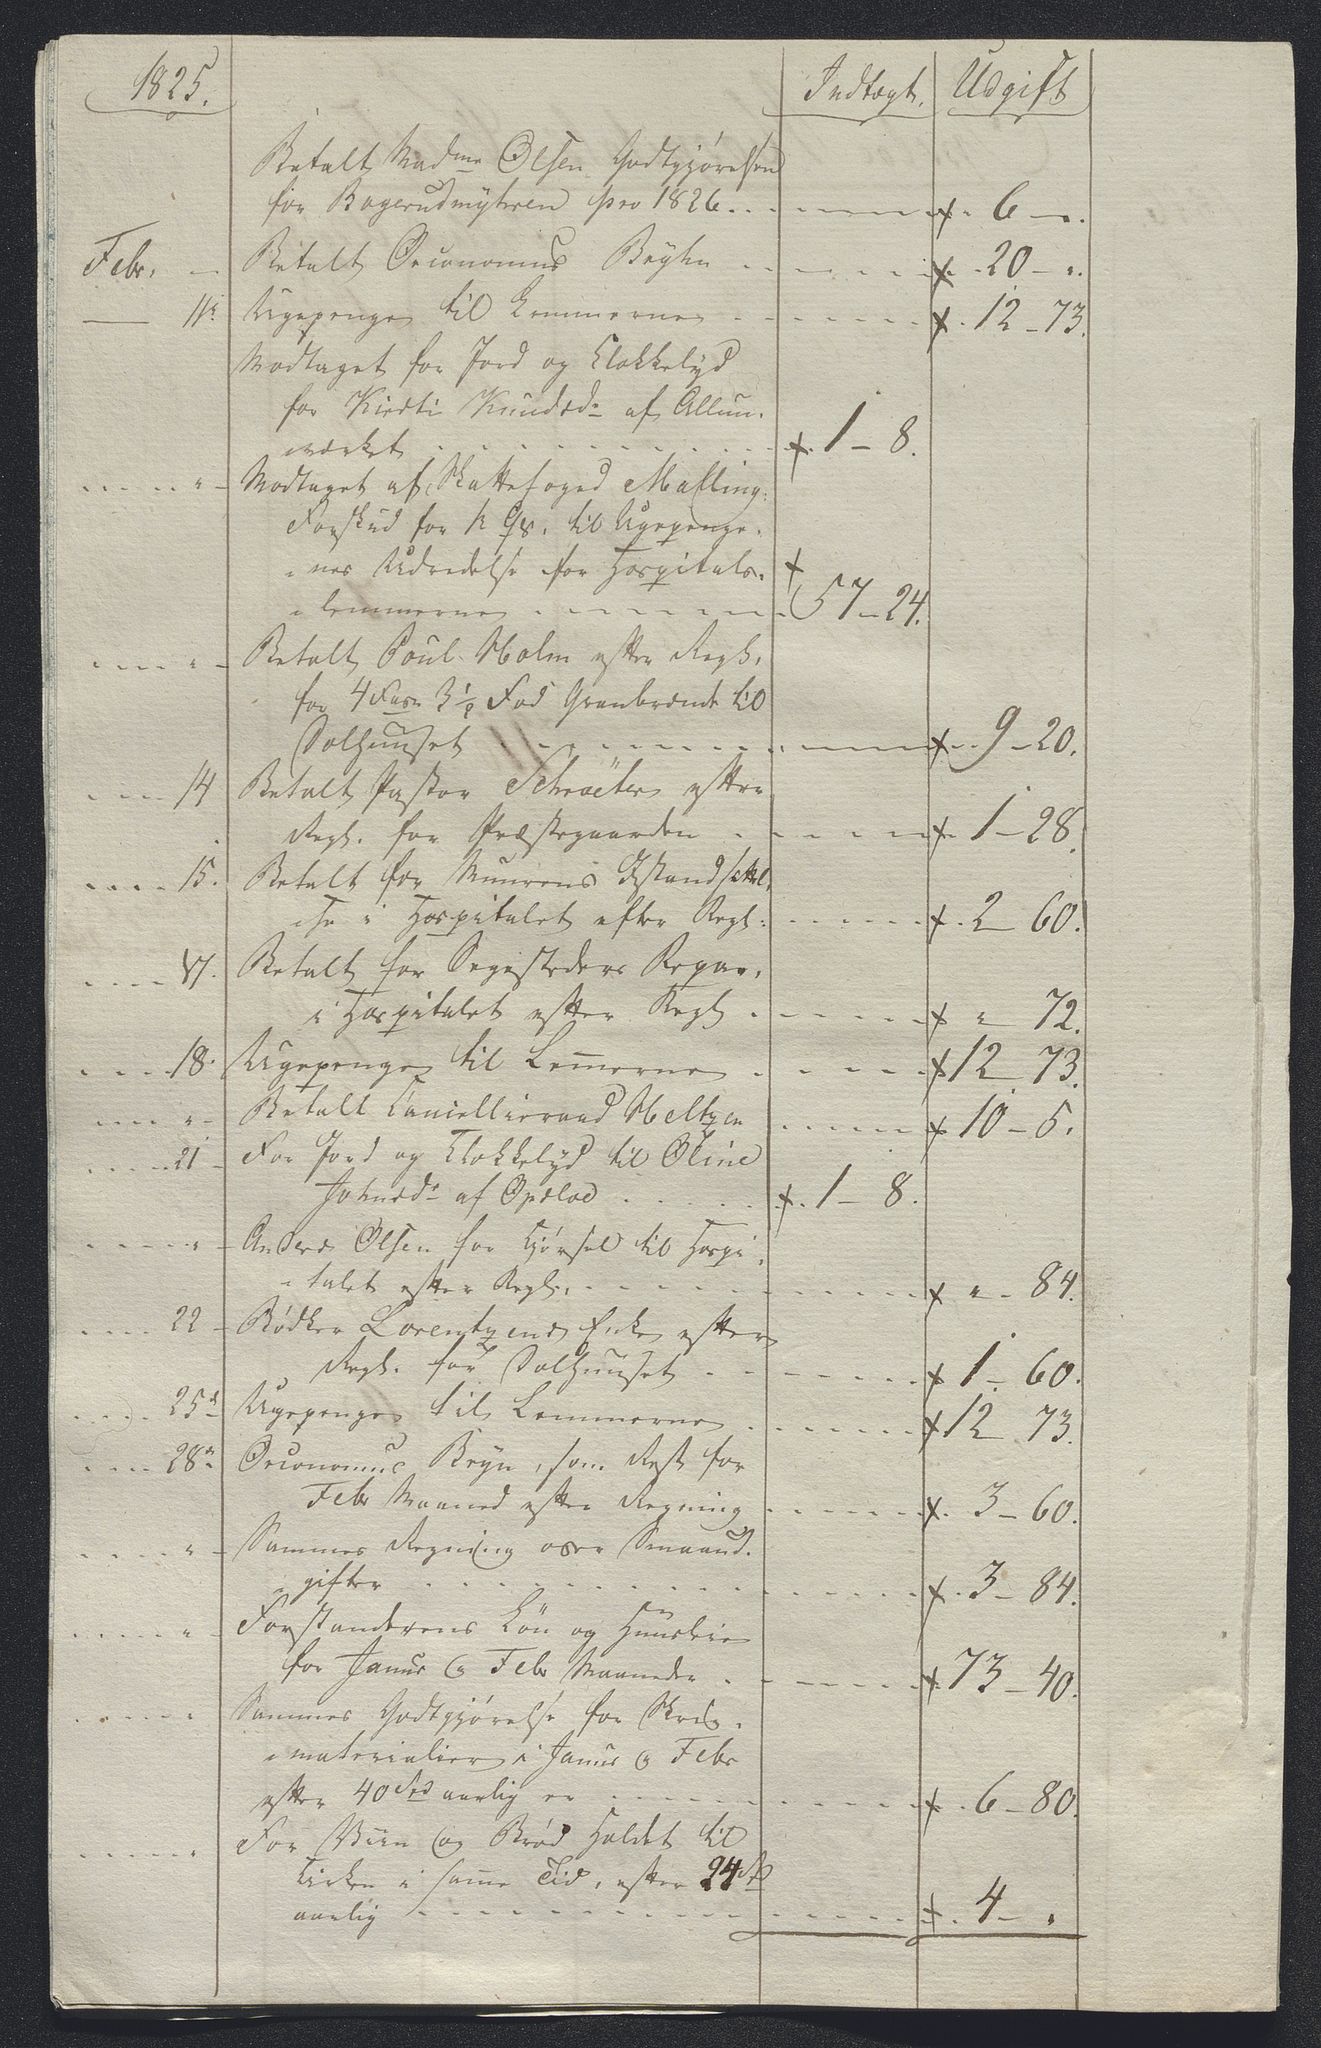 1825. Indtægt. Udgift
Betalt Madme Olsen Godtgjørelsen
for Bagerudmyhren pro 1826 6 - „.
Febr. Betalt Oeconomus Bryhn 20 - „.
11te Ugepenge til Lemmerne 12 - 73.
Modtaget for Jord og Klokkelyd
for Kirsti Knudsdr af Allun-
værket 1 - 8.
„ Modtaget af Skattefoged Malling
Forskud for til Ugepenge-
nes Udredelse for Hospitals-
lemmerne 57 - 24.
„ Betalt Poul Holm efter Regh.
for 4 Favn 3 1/2 Fod Granbrænde til
Dolhuuset 9 - 20.
14 Betalt Pastor Schrøeter efter
Regh. for Præstegaarden 1 - 28.
15. Betalt for Muurens Istandsættel-
se i Hospitalet efter Regh. 2 60.
17. Betalt for Repar.
i Hospitalet efter Regh. „ 72.
18. Ugepenge til Lemerne 12 73.
„ Betalt Cancellieraad Meltzen 10 - 5.
21 For Jord og Klokkelyd til Oline
Johnsdr af Opsloe 1 - 8.
„ Anders Olsen for Kjørsel til Hospi-
talet efter Regh. „ - 84.
22 Bødker Lorentzens Enke efter
Regh. for Dolhuuset 1 - 60.
25de Ugepenge til Lemmerne 12 73.
28de Oeconomus Bryn, som Rest for
Febr Maaned efter Regning 3 - 60.
„ Sammes Regning over Smaaud-
gifter 3 - 84.
„ Forstanderens Løn og Huusleie
for Januar og Febr Maaneder 73 - 40.
„ Sammes Godtgjørelse for Skriv-
materialier i Januar og Febr
efter 40 Spd aarlig er 6 - 80.
„ For Viin og Brød holdt til
Kirken i samme Tid, efter 24 Spd
aarlig 4 - „